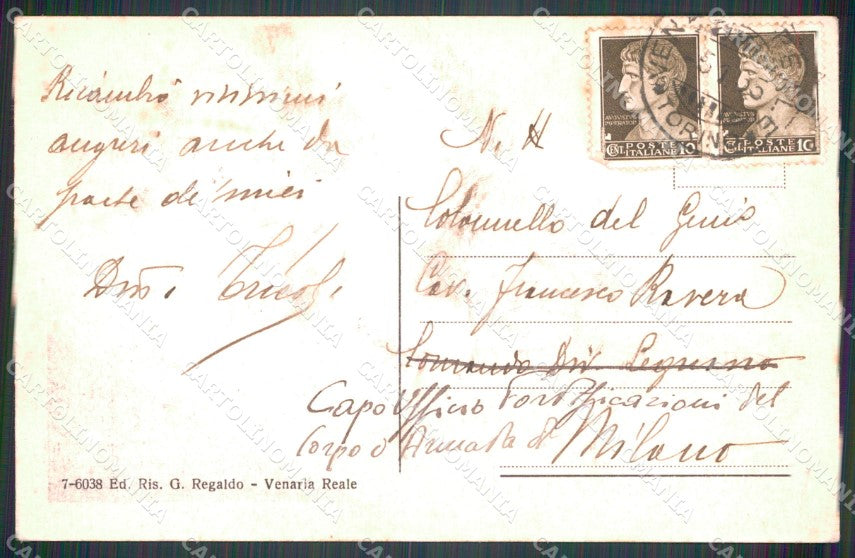 Ricambio vivissimi
auguri anche da
parte de' miei
Dev.
N. H
Colonnello del Genio
Cav. Francesco Ravera
Comando Div. Legnano
Capo Ufficio Fortificazioni del
Corpo d'Armata di Milano
7-6038 Ed. Ris. G. Regaldo - Venaria Reale
POSTE
ITALIANE
CENT. 10
POSTE
ITALIANE
CENT. 10
VENARIA
TORINO
CARTOLINOMANIA